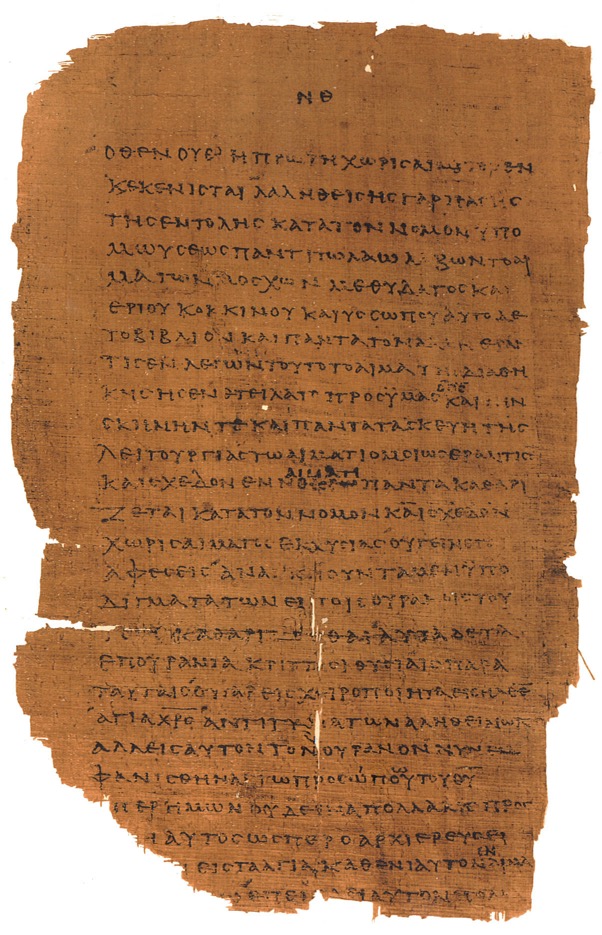 ΝΘ
ΟΘΕΝ ΟΥΔ Η ΠΡΩΤΗ ΧΩΡΙϹ ΑΙΜΑΤΟϹ ΕΝ
ΚΕΚΕΝΙϹΤΑΙ ΛΑΛΗΘΕΙϹΗϹ ΓΑΡ ΠΑϹΗϹ
ΤΗϹ ΕΝΤΟΛΗϹ ΚΑΤΑ ΤΟΝ ΝΟΜΟΝ ΥΠΟ
ΜΩΥϹΕΩϹ ΠΑΝΤΙ ΤΩ ΛΑΩ ΛΑΒΩΝ ΤΟ ΑΙ
ΜΑ ΤΩΝ ΜΟϹΧΩΝ ΜΕΘ ΥΔΑΤΟϹ ΚΑΙ
ΕΡΙΟΥ ΚΟΚΚΙΝΟΥ ΚΑΙ ΥϹΩΠΟΥ ΑΥΤΟ ΔΕ
ΤΟ ΒΙΒΛΙΟΝ ΚΑΙ ΠΑΝΤΑ ΤΟΝ
ΤΙϹΕΝ ΛΕΓΩΝ ΤΟΥΤΟ ΤΟ ΑΙΜΑ ΤΗϹ ΔΙΑΘΗ
ΚΗϹ ΗϹ ΕΝΕΤΕΙΛΑΤΟ ΠΡΟϹ ΥΜΑϹ Ο ΘϹ ΚΑΙ ΤΗΝ
ϹΚΗΝΗΝ ΤΕ ΚΑΙ ΠΑΝΤΑ ΤΑ ϹΚΕΥΗ ΤΗϹ
ΛΕΙΤΟΥΡΓΙΑϹ ΤΩ ΑΙΜΑΤΙ ΟΜΟΙΩϹ ΕΡΑΝΤΙϹ
ΚΑΙ ϹΧΕΔΟΝ ΕΝ ΑΙΜΑΤΙ ΠΑΝΤΑ ΚΑΘΑΡΙ
ΖΕΤΑΙ ΚΑΤΑ ΤΟΝ ΝΟΜΟΝ ΚΑΙ ϹΧΕΔΟΝ
ΧΩΡΙϹ ΑΙΜΑΤΕΚΧΥϹΙΑϹ ΟΥ ΓΕΙΝΕΤΑΙ
ΑΦΕϹΕΙϹ ΑΝΑΓΚΗ ΟΥΝ ΤΑ ΜΕΝ ΥΠΟ
ΔΙΓΜΑΤΑ ΤΩΝ ΕΝ ΤΟΙϹ ΟΥΡΑΝΟΙϹ ΤΟΥ
ΤΟΙϹ ΚΑΘΑΡΙΖΕϹΘΑΙ ΑΥΤΑ ΔΕ ΤΑ
ΕΠΟΥΡΑΝΙΑ ΚΡΙΤΤΟϹΙ ΘΥϹΙΑΙϹ ΠΑΡΑ
ΤΑΥΤΑϹ ΟΥ ΓΑΡ ΕΙϹ ΧΙΡΟΠΟΙΗΤΑ ΕΙϹΗΛΘΕ
ΑΓΙΑ ΧΡϹ ΑΝΤΙΤΥΠΑ ΤΩΝ ΑΛΗΘΕΙΝΩΝ
ΑΛΛ ΕΙϹ ΑΥΤΟΝ ΤΟΝ ΟΥΡΑΝΟΝ ΝΥΝ
ΦΑΝΙϹΘΗΝΑΙ ΤΩ ΠΡΟϹΩΠΩ ΤΟΥ ΘΥ
ΥΠΕΡ ΗΜΩΝ ΟΥΔΕ ΙΝΑ ΠΟΛΛΑΚΙϹ ΠΡΟϹ
ΑΥΤΟΝ ΩϹΠΕΡ Ο ΑΡΧΙΕΡΕΥϹ ΕΙ
ΕΙϹ ΤΑ ΑΓΙΑ ΚΑΘ ΕΝΙΑΥΤΟΝ ΕΝ ΑΙΜΑ
ΕΠΕΙ ΕΔΕΙ ΑΥΤΟΝ